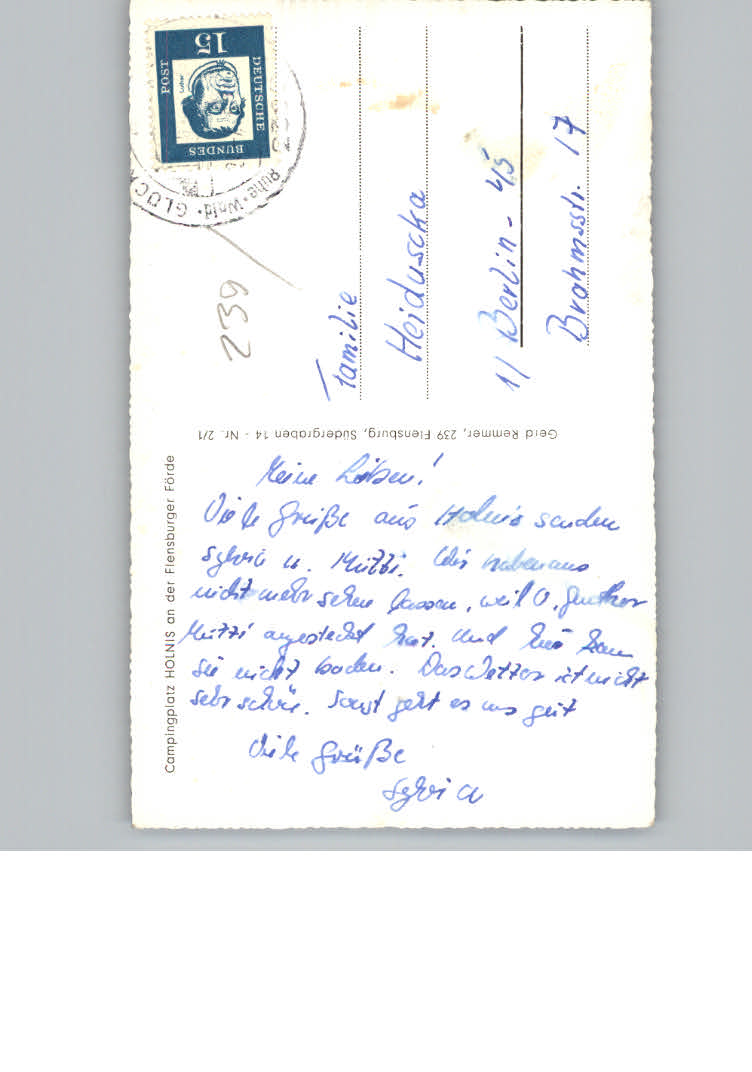 Campingplatz HOLNIS an der Flensburger Förde
Meine Lieben!
Viele Grüße aus Holnis senden
Sylvia u. Mutti. Wir haben uns
nicht mehr sehen lassen, weil O. Günther
Mutti angesteckt hat. Und hier kann
sie nicht baden. Das Wetter ist nicht
sehr schön. Sonst geht es uns gut
Viele Grüße
Sylvia
Gerd Remmer, 239 Flensburg, Südergraben 14 - Nr. 2/1
DEUTSCHE
BUNDES
POST
15
Luther
Ruhe · Wald · GLÜCK
239
Familie
Heiduscka
1/ Berlin - 45
Brahmsstr. 17